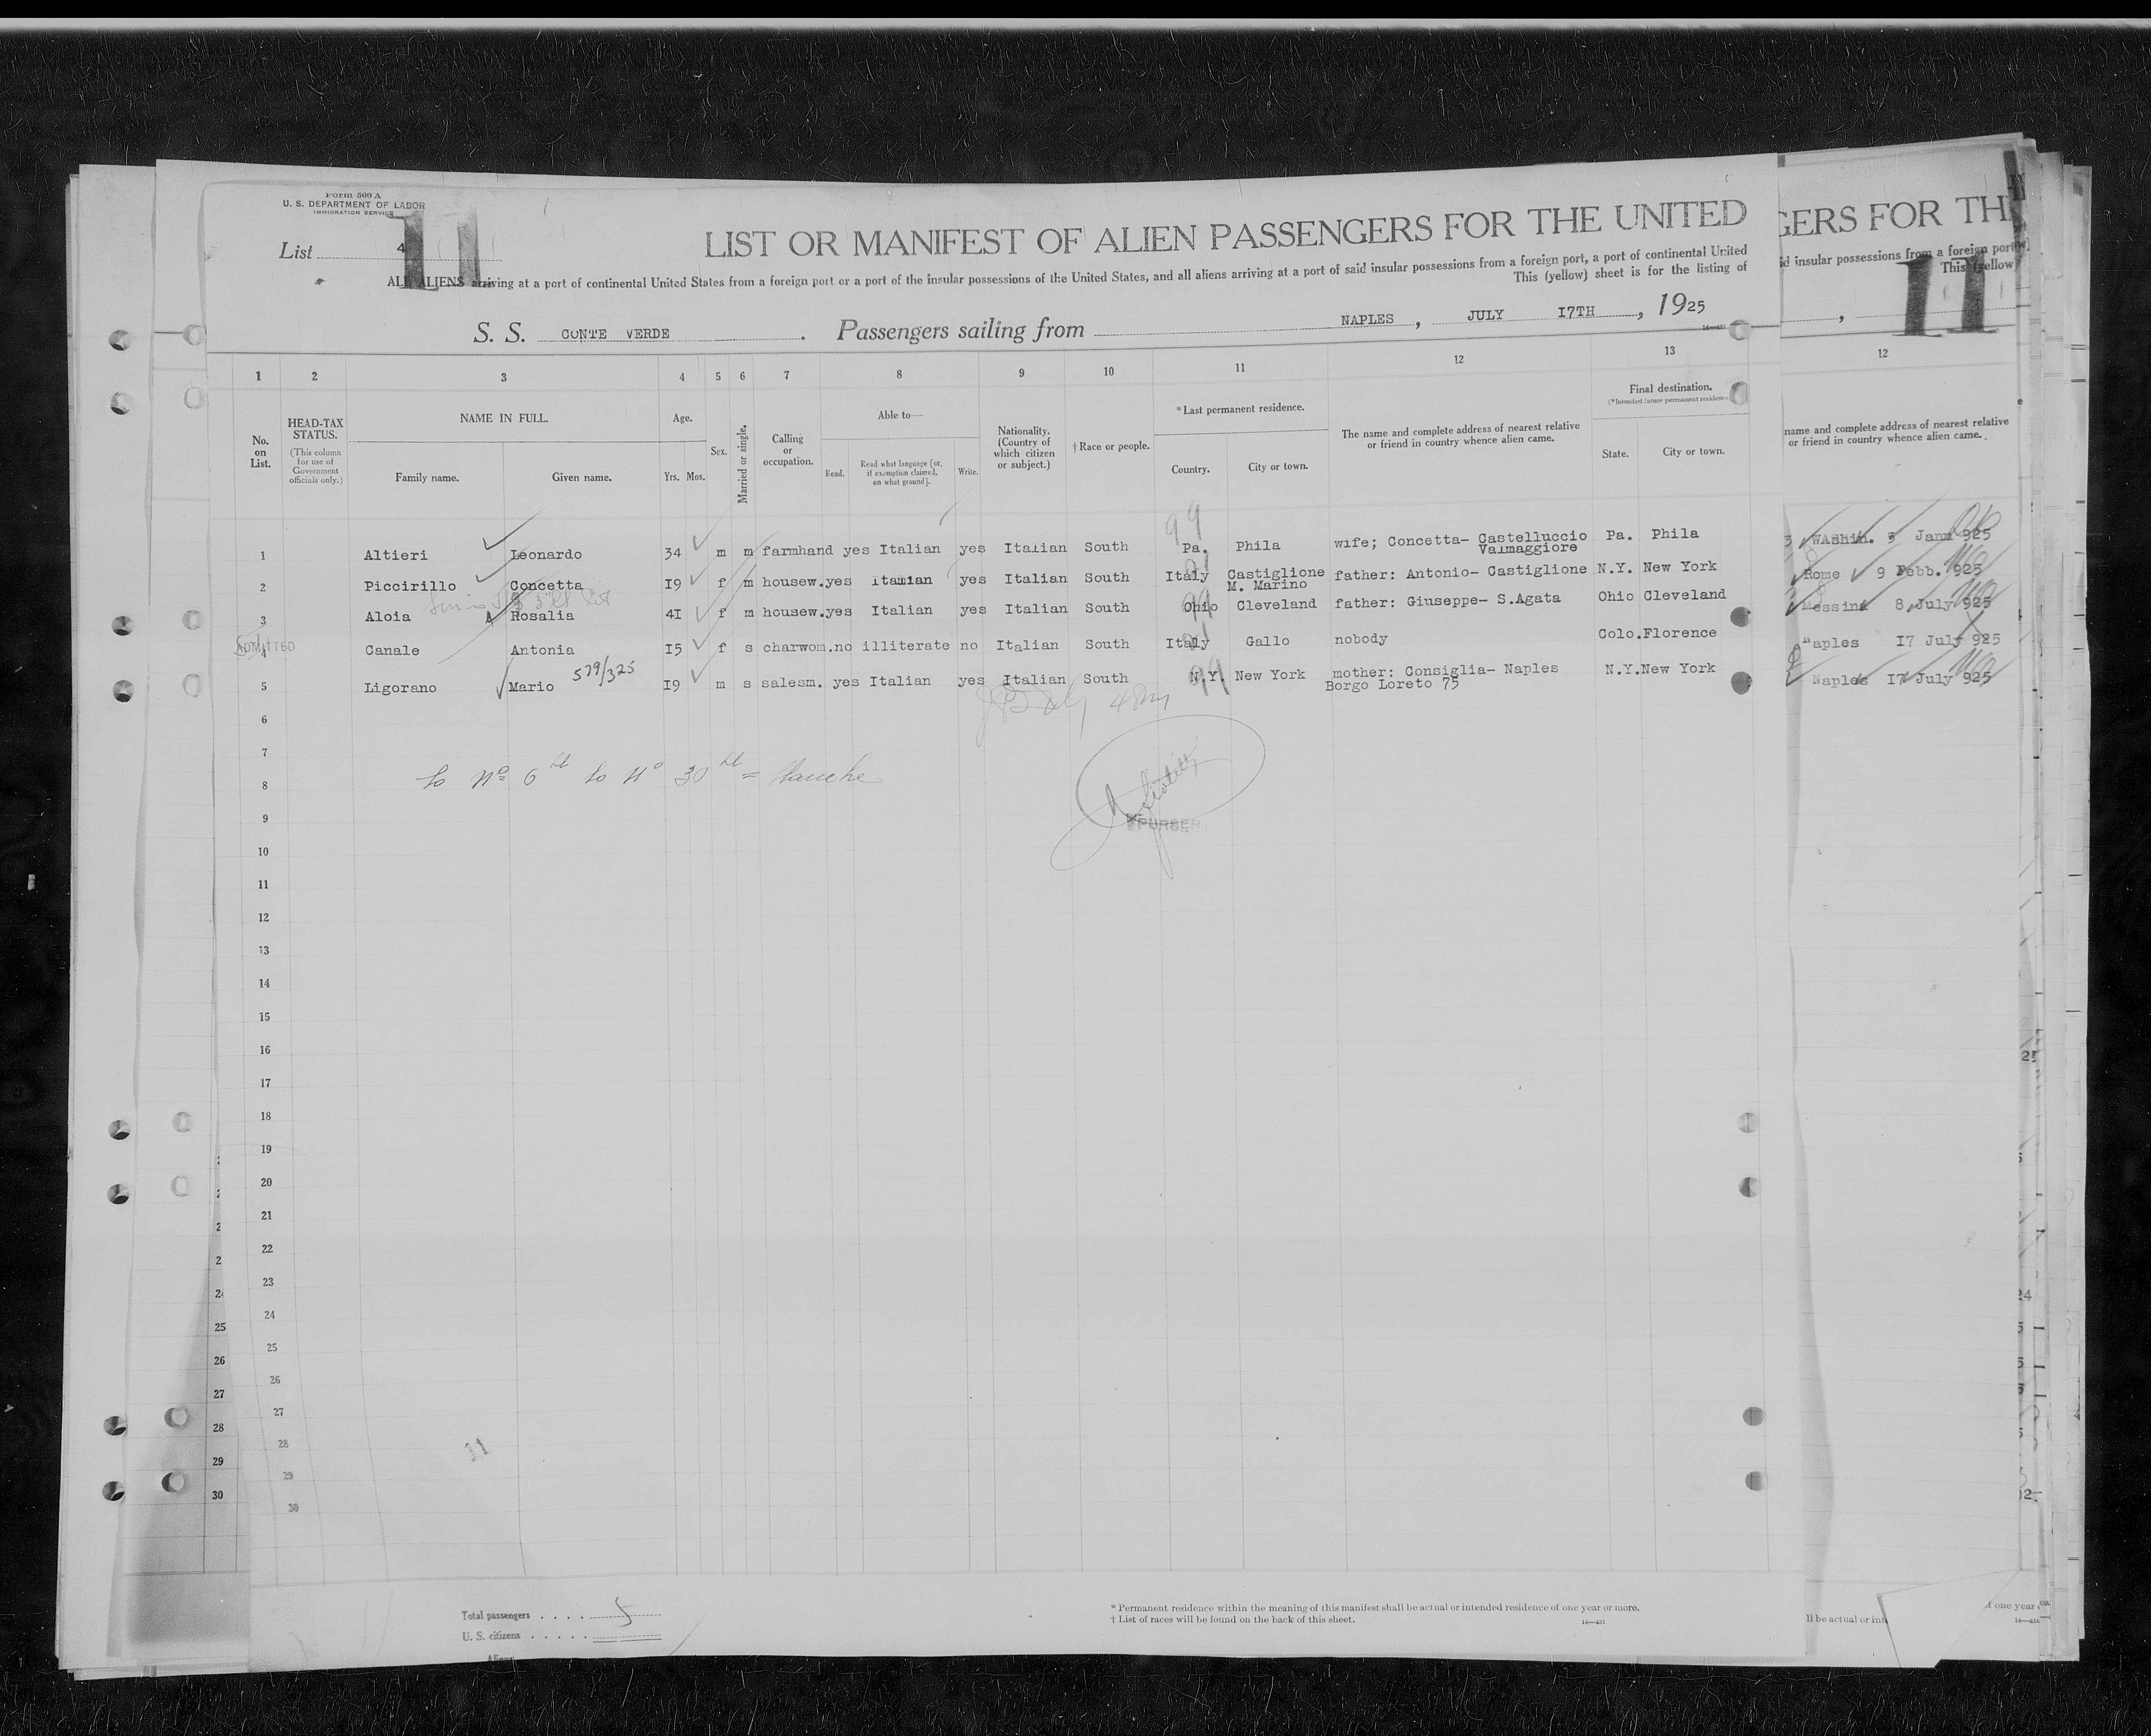 Form 500 A
U. S. DEPARTMENT OF LABOR
IMMIGRATION SERVICE
List 4
11
LIST OR MANIFEST OF ALIEN PASSENGERS FOR THE UNITED
ALL ALIENS arriving at a port of continental United States from a foreign port or a port of the insular possessions of the United States, and all aliens arriving at a port of said insular possessions from a foreign port, a port of continental United
This (yellow) sheet is for the listing of
S. S. CONTE VERDE. Passengers sailing from NAPLES, JULY I7TH, 1925
GERS FOR TH
id insular possessions from a foreign port
This (yellow
11
1 2 3 4 5 6 7 8 9 10 11 12 13 12
No. on List.
HEAD-TAX STATUS.
(This column for use of Government officials only.)
NAME IN FULL.
Family name. Given name.
Age.
Yrs. Mos.
Sex.
Married or single.
Calling or occupation.
Able to—
Read. Read what language [or, if exemption claimed, on what ground]. Write.
Nationality. (Country of which citizen or subject.)
†Race or people.
*Last permanent residence.
Country. City or town.
The name and complete address of nearest relative or friend in country whence alien came.
Final destination.
(*Intended future permanent residence
State. City or town.
name and complete address of nearest relative
or friend in country whence alien came.
1 Altieri Leonardo 34 m m farmhand yes Italian yes Italian South Pa. Phila wife; Concetta- Castelluccio Valmaggiore Pa. Phila Washin. 5 Jann 925
2 Piccirillo Concetta I9 f m housew.yes Itamian yes Italian South Italy Castiglione M. Marino father: Antonio- Castiglione N.Y. New York Rome 9 Febb. 925
3 Aloia Rosalia 4I f m housew.yes Italian yes Italian South Ohio Cleveland father: Giuseppe- S.Agata Ohio Cleveland Messina 8 July 925
ADMITTED
4 Canale Antonia I5 f s charwom.no illiterate no Italian South Italy Gallo nobody Colo.Florence Naples I7 July 925
5 Ligorano Mario 579/325 I9 m s salesm. yes Italian yes Italian South N.Y. New York mother: Consiglia- Naples Borgo Loreto 75 N.Y.New York Naples I7 July 925
6
7
to No 6th to No 30th =
8
PURSER
9
10
11
12
13
14
15
16
17
18
19
20
21
22
23
24
25
26
27
28
29
30
25
26
27
28
29
30
11
Total passengers . . . . 5
U. S. citizens . . . . .
Aliens
* Permanent residence within the meaning of this manifest shall be actual or intended residence of one year or more.
† List of races will be found on the back of this sheet.
14—431
ll be actual or int
of one year
14—431